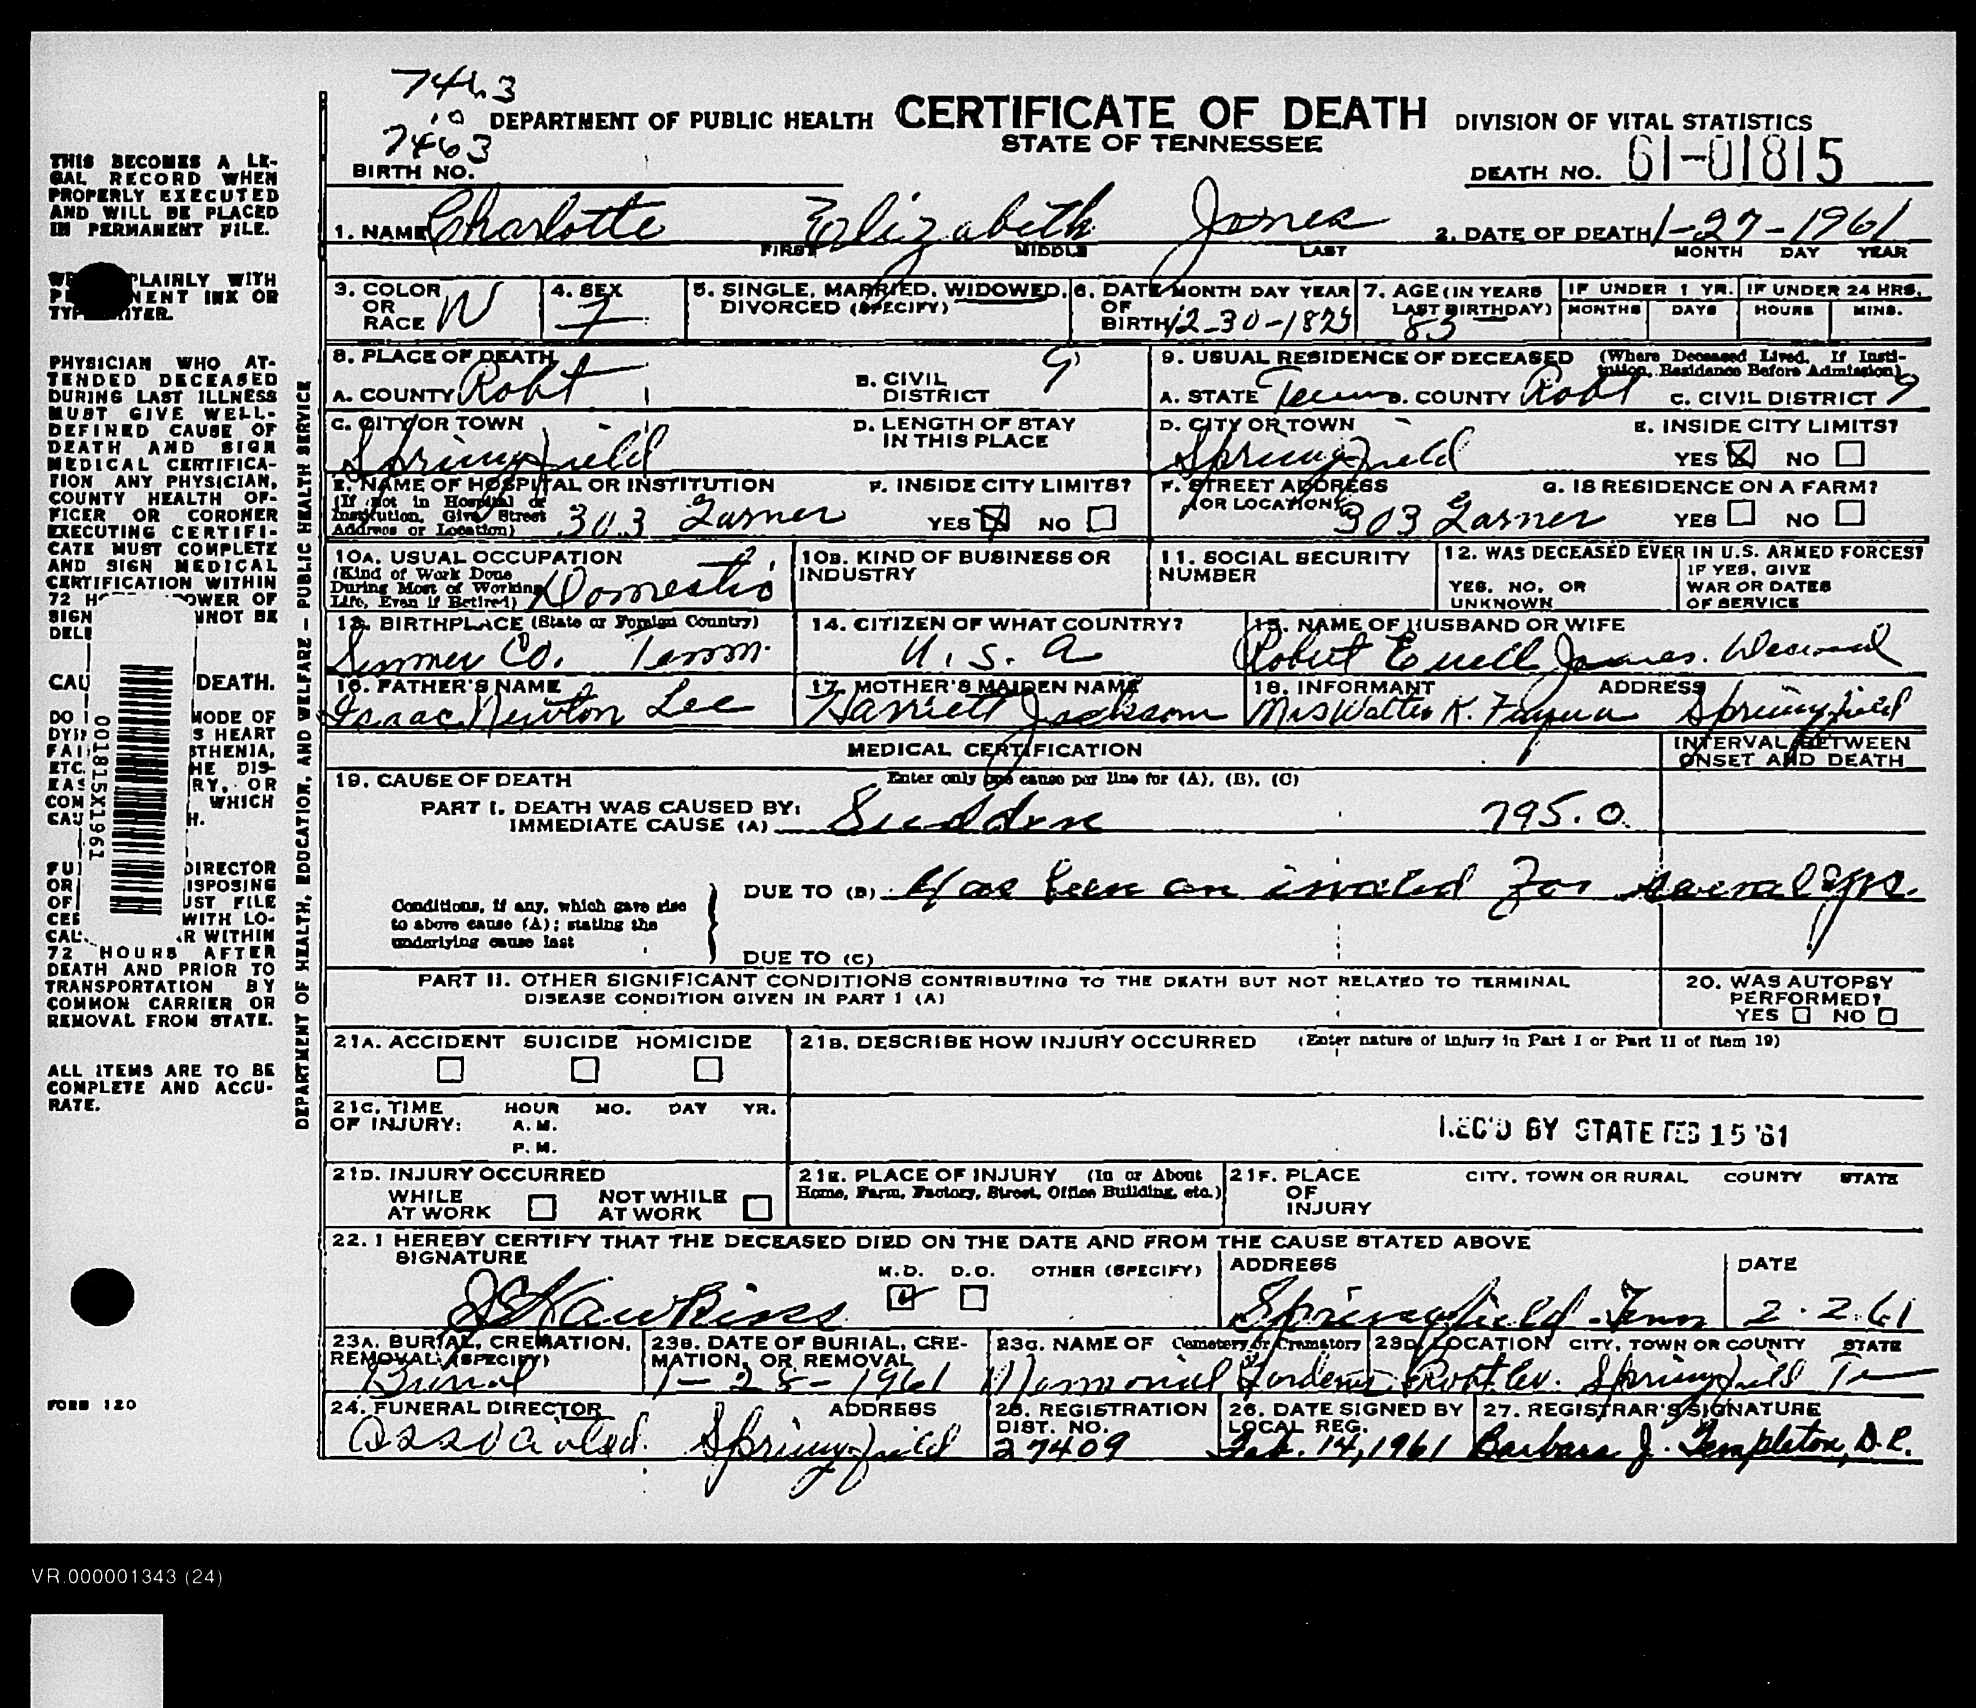 7463
10
7463
DEPARTMENT OF PUBLIC HEALTH CERTIFICATE OF DEATH DIVISION OF VITAL STATISTICS
STATE OF TENNESSEE
BIRTH NO. DEATH NO. 61-01815
1. NAME Charlotte Elizabeth Jones 2. DATE OF DEATH 1-27-1961
FIRST MIDDLE LAST MONTH DAY YEAR
3. COLOR OR RACE W
4. SEX F
5. SINGLE, MARRIED, WIDOWED, DIVORCED (SPECIFY)
6. DATE OF BIRTH MONTH DAY YEAR 12-30-18
7. AGE (IN YEARS LAST BIRTHDAY) 83
IF UNDER 1 YR. MONTHS DAYS
IF UNDER 24 HRS. HOURS MINS.
8. PLACE OF DEATH
A. COUNTY Robt
B. CIVIL DISTRICT 9
9. USUAL RESIDENCE OF DECEASED (Where Deceased Lived. If Insti-
tution, Residence Before Admission)
A. STATE Tenn B. COUNTY Robt C. CIVIL DISTRICT 9
C. CITY OR TOWN Springfield
D. LENGTH OF STAY IN THIS PLACE
D. CITY OR TOWN Springfield
E. INSIDE CITY LIMITS?
YES X NO
E. NAME OF HOSPITAL OR INSTITUTION
(If not in Hospital or
Institution, Give Street
Address or Location) 303 Garner
F. INSIDE CITY LIMITS?
YES X NO
F. STREET ADDRESS
(OR LOCATION) 303 Garner
G. IS RESIDENCE ON A FARM?
YES NO
10A. USUAL OCCUPATION
(Kind of Work Done
During Most of Working
Life, Even if Retired) Domestic
10B. KIND OF BUSINESS OR INDUSTRY
11. SOCIAL SECURITY NUMBER
12. WAS DECEASED EVER IN U.S. ARMED FORCES?
YES, NO, OR UNKNOWN
IF YES, GIVE WAR OR DATES OF SERVICE
13. BIRTHPLACE (State or Foreign Country)
Sumner Co. Tenn.
14. CITIZEN OF WHAT COUNTRY?
U.S.A
15. NAME OF HUSBAND OR WIFE
Robert Ewell Jones.
16. FATHER'S NAME
Isaac Newton Lee
17. MOTHER'S MAIDEN NAME
Harriett Jackson
18. INFORMANT ADDRESS
Mrs Walter K. Springfield
MEDICAL CERTIFICATION
INTERVAL BETWEEN
ONSET AND DEATH
19. CAUSE OF DEATH Enter only one cause per line for (A), (B), (C)
PART I. DEATH WAS CAUSED BY:
IMMEDIATE CAUSE (A) Sudden 795.0
DUE TO (B) Has been an invalid for several yrs.
Conditions, if any, which gave rise
to above cause (A); stating the
underlying cause last
DUE TO (C)
PART II. OTHER SIGNIFICANT CONDITIONS CONTRIBUTING TO THE DEATH BUT NOT RELATED TO TERMINAL
DISEASE CONDITION GIVEN IN PART I (A)
20. WAS AUTOPSY
PERFORMED?
YES NO
21A. ACCIDENT SUICIDE HOMICIDE
21B. DESCRIBE HOW INJURY OCCURRED (Enter nature of injury in Part I or Part II of Item 19)
21C. TIME OF INJURY: HOUR MO. DAY YR.
A.M.
P.M.
REC'D BY STATE FEB 15 '61
21D. INJURY OCCURRED
WHILE AT WORK NOT WHILE AT WORK
21E. PLACE OF INJURY (In or About
Home, Farm, Factory, Street, Office Building, etc.)
21F. PLACE OF INJURY CITY, TOWN OR RURAL COUNTY STATE
22. I HEREBY CERTIFY THAT THE DECEASED DIED ON THE DATE AND FROM THE CAUSE STATED ABOVE
SIGNATURE M.D. D.O. OTHER (SPECIFY) ADDRESS DATE
Hawkins Springfield - Tenn 2.2.61
23A. BURIAL, CREMATION,
REMOVAL (SPECIFY)
Burial
23B. DATE OF BURIAL, CRE-
MATION, OR REMOVAL
1-28-1961
23C. NAME OF Cemetery or Crematory
Memorial Gardens
23D. LOCATION CITY, TOWN OR COUNTY STATE
Robt Co. Springfield Te
24. FUNERAL DIRECTOR ADDRESS
Associated. Springfield
25. REGISTRATION DIST. NO.
27409
26. DATE SIGNED BY LOCAL REG.
Feb. 14, 1961
27. REGISTRAR'S SIGNATURE
Barbara J. Templeton, D.R.
THIS BECOMES A LE-
GAL RECORD WHEN
PROPERLY EXECUTED
AND WILL BE PLACED
IN PERMANENT FILE.
PLAINLY WITH
NENT INK OR
PHYSICIAN WHO AT-
TENDED DECEASED
DURING LAST ILLNESS
MUST GIVE WELL-
DEFINED CAUSE OF
DEATH AND SIGN
MEDICAL CERTIFICA-
TION ANY PHYSICIAN,
COUNTY HEALTH OF-
FICER OR CORONER
EXECUTING CERTIFI-
CATE MUST COMPLETE
AND SIGN MEDICAL
CERTIFICATION WITHIN
72 OWER OF
SIGN NNOT BE
DEL
CAU DEATH.
DO MODE OF
DYI S HEART
FAI STHENIA,
ETC. HE DIS-
EAS RY, OR
COM WHICH
CAU H.
FU DIRECTOR
OR ISPOSING
OF UST FILE
CER WITH LO-
CAL R WITHIN
72 HOURS AFTER
DEATH AND PRIOR TO
TRANSPORTATION BY
COMMON CARRIER OR
REMOVAL FROM STATE.
ALL ITEMS ARE TO BE
COMPLETE AND ACCU-
RATE.
001815X1961
DEPARTMENT OF HEALTH, EDUCATION, AND WELFARE - PUBLIC HEALTH SERVICE
FORM 120
VR.000001343 (24)